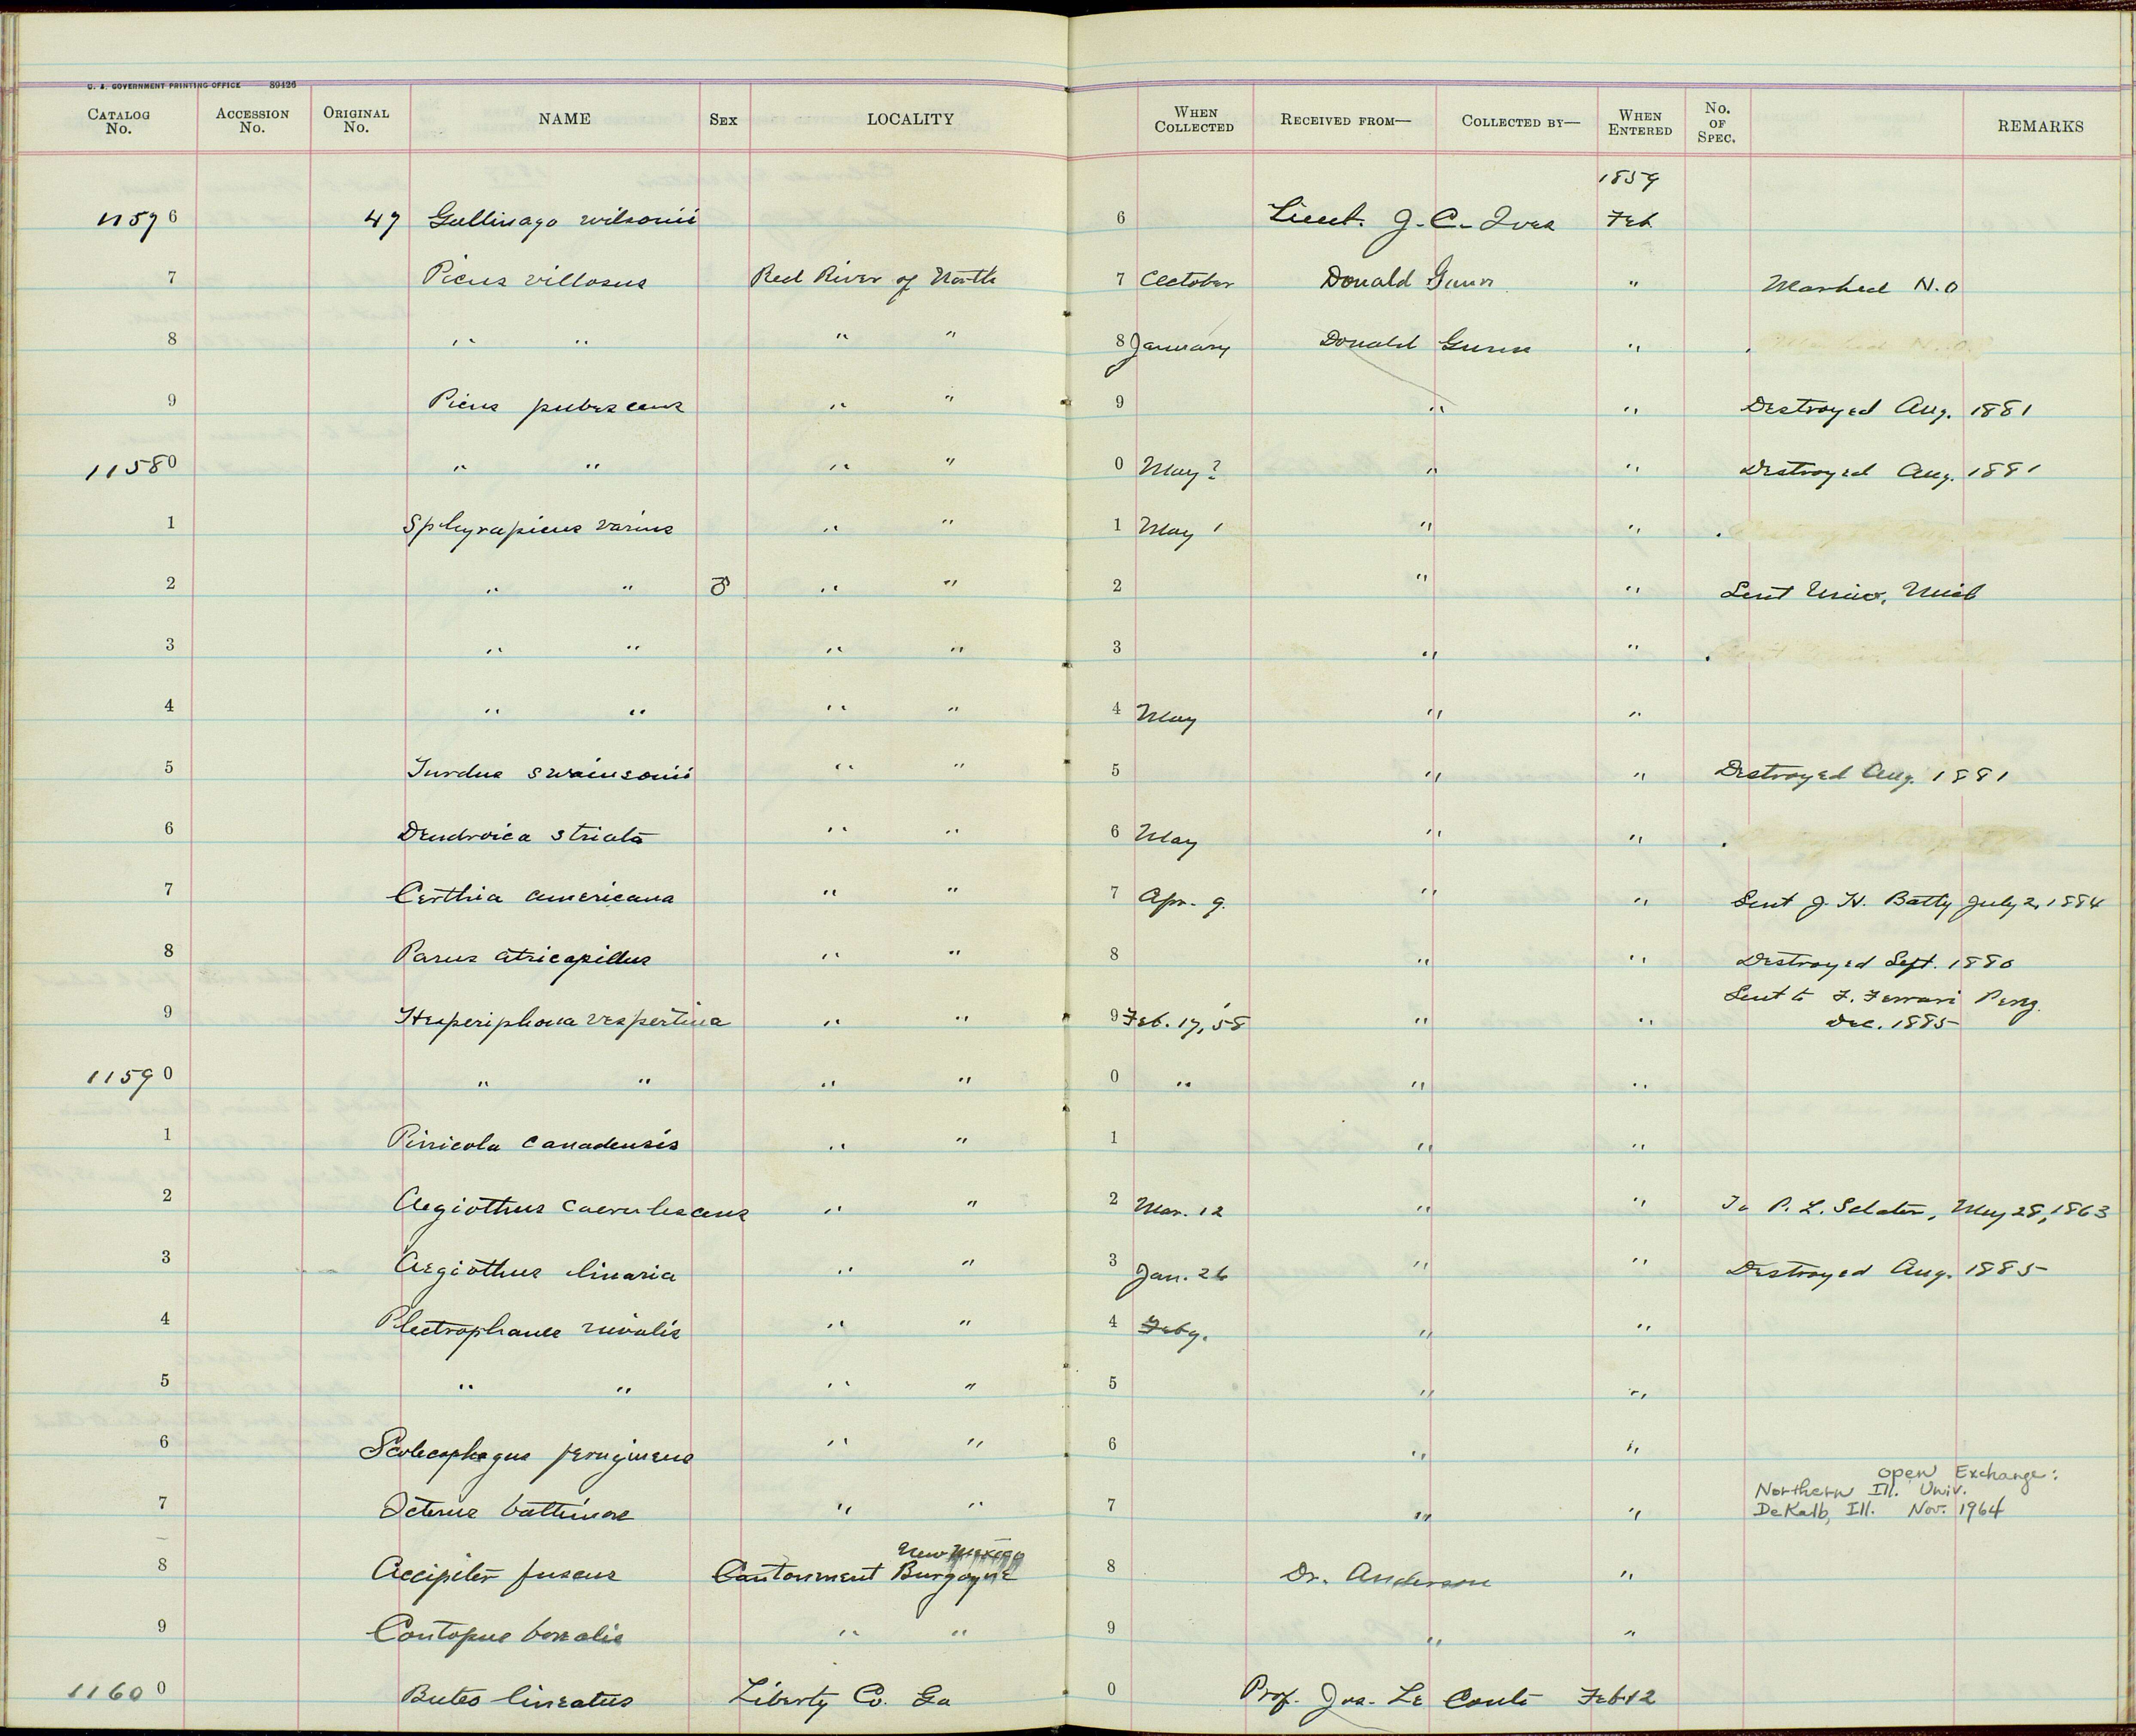 U. S. GOVERNMENT PRINTING OFFICE 89426
CATALOG No. ACCESSION No. ORIGINAL No. NAME SEX LOCALITY WHEN COLLECTED RECEIVED FROM— COLLECTED BY— WHEN ENTERED No. OF SPEC. REMARKS
1859
11576 47 Gallinago wilsonii 6 Lieut. J. C. Ives Feb
7 Picus villosus Red River of North 7 October Donald Gunn " Marked N.O
8 " " " " 8 January Donald Gunn "
9 Picus pubescens " " 9 " " Destroyed Aug. 1881
11580 " " " " 0 May? " " Destroyed Aug. 1881
1 Sphyrapicus varius " " 1 May 1 " "
2 " " ♂ " " 2 " " Sent Univ. Mich
3 " " " " 3 " "
4 " " " " 4 May " "
5 Turdus swainsonii " " 5 " " Destroyed Aug. 1881
6 Dendroica striata " " 6 May " "
7 Certhia americana " " 7 Apr. 9. " " Sent J. H. Batty July 2, 1884
8 Parus atricapillus " " 8 " " Destroyed Sept. 1880
9 Hesperiphona vespertina " " 9 Feb. 17, '58 " " Sent to F. Ferrari Perez
Dec. 1885
11590 " " " " 0 " " "
1 Pinicola canadensis " " 1 " "
2 Aegiothus caerulescens " " 2 Mar. 12 " " To P. L. Sclater, May 28, 1863
3 Aegiothus linaria " " 3 Jan. 26 " " Destroyed Aug. 1885
4 Plectrophanes nivalis " " 4 Feby. " "
5 " " " " 5 " "
6 Scolecophagus ferugineus " " 6 " "
open Exchange:
Northern Ill. Univ.
7 Icterus baltimore " " 7 " " DeKalb, Ill. Nov. 1964
New Mexico
8 Accipiter fuscus Cantonment Burgoyne 8 Dr. Anderson "
9 Contopus borealis " " 9 " "
11600 Buteo lineatus Liberty Co. Ga 0 Prof. Jos. Le Conte Feb 12